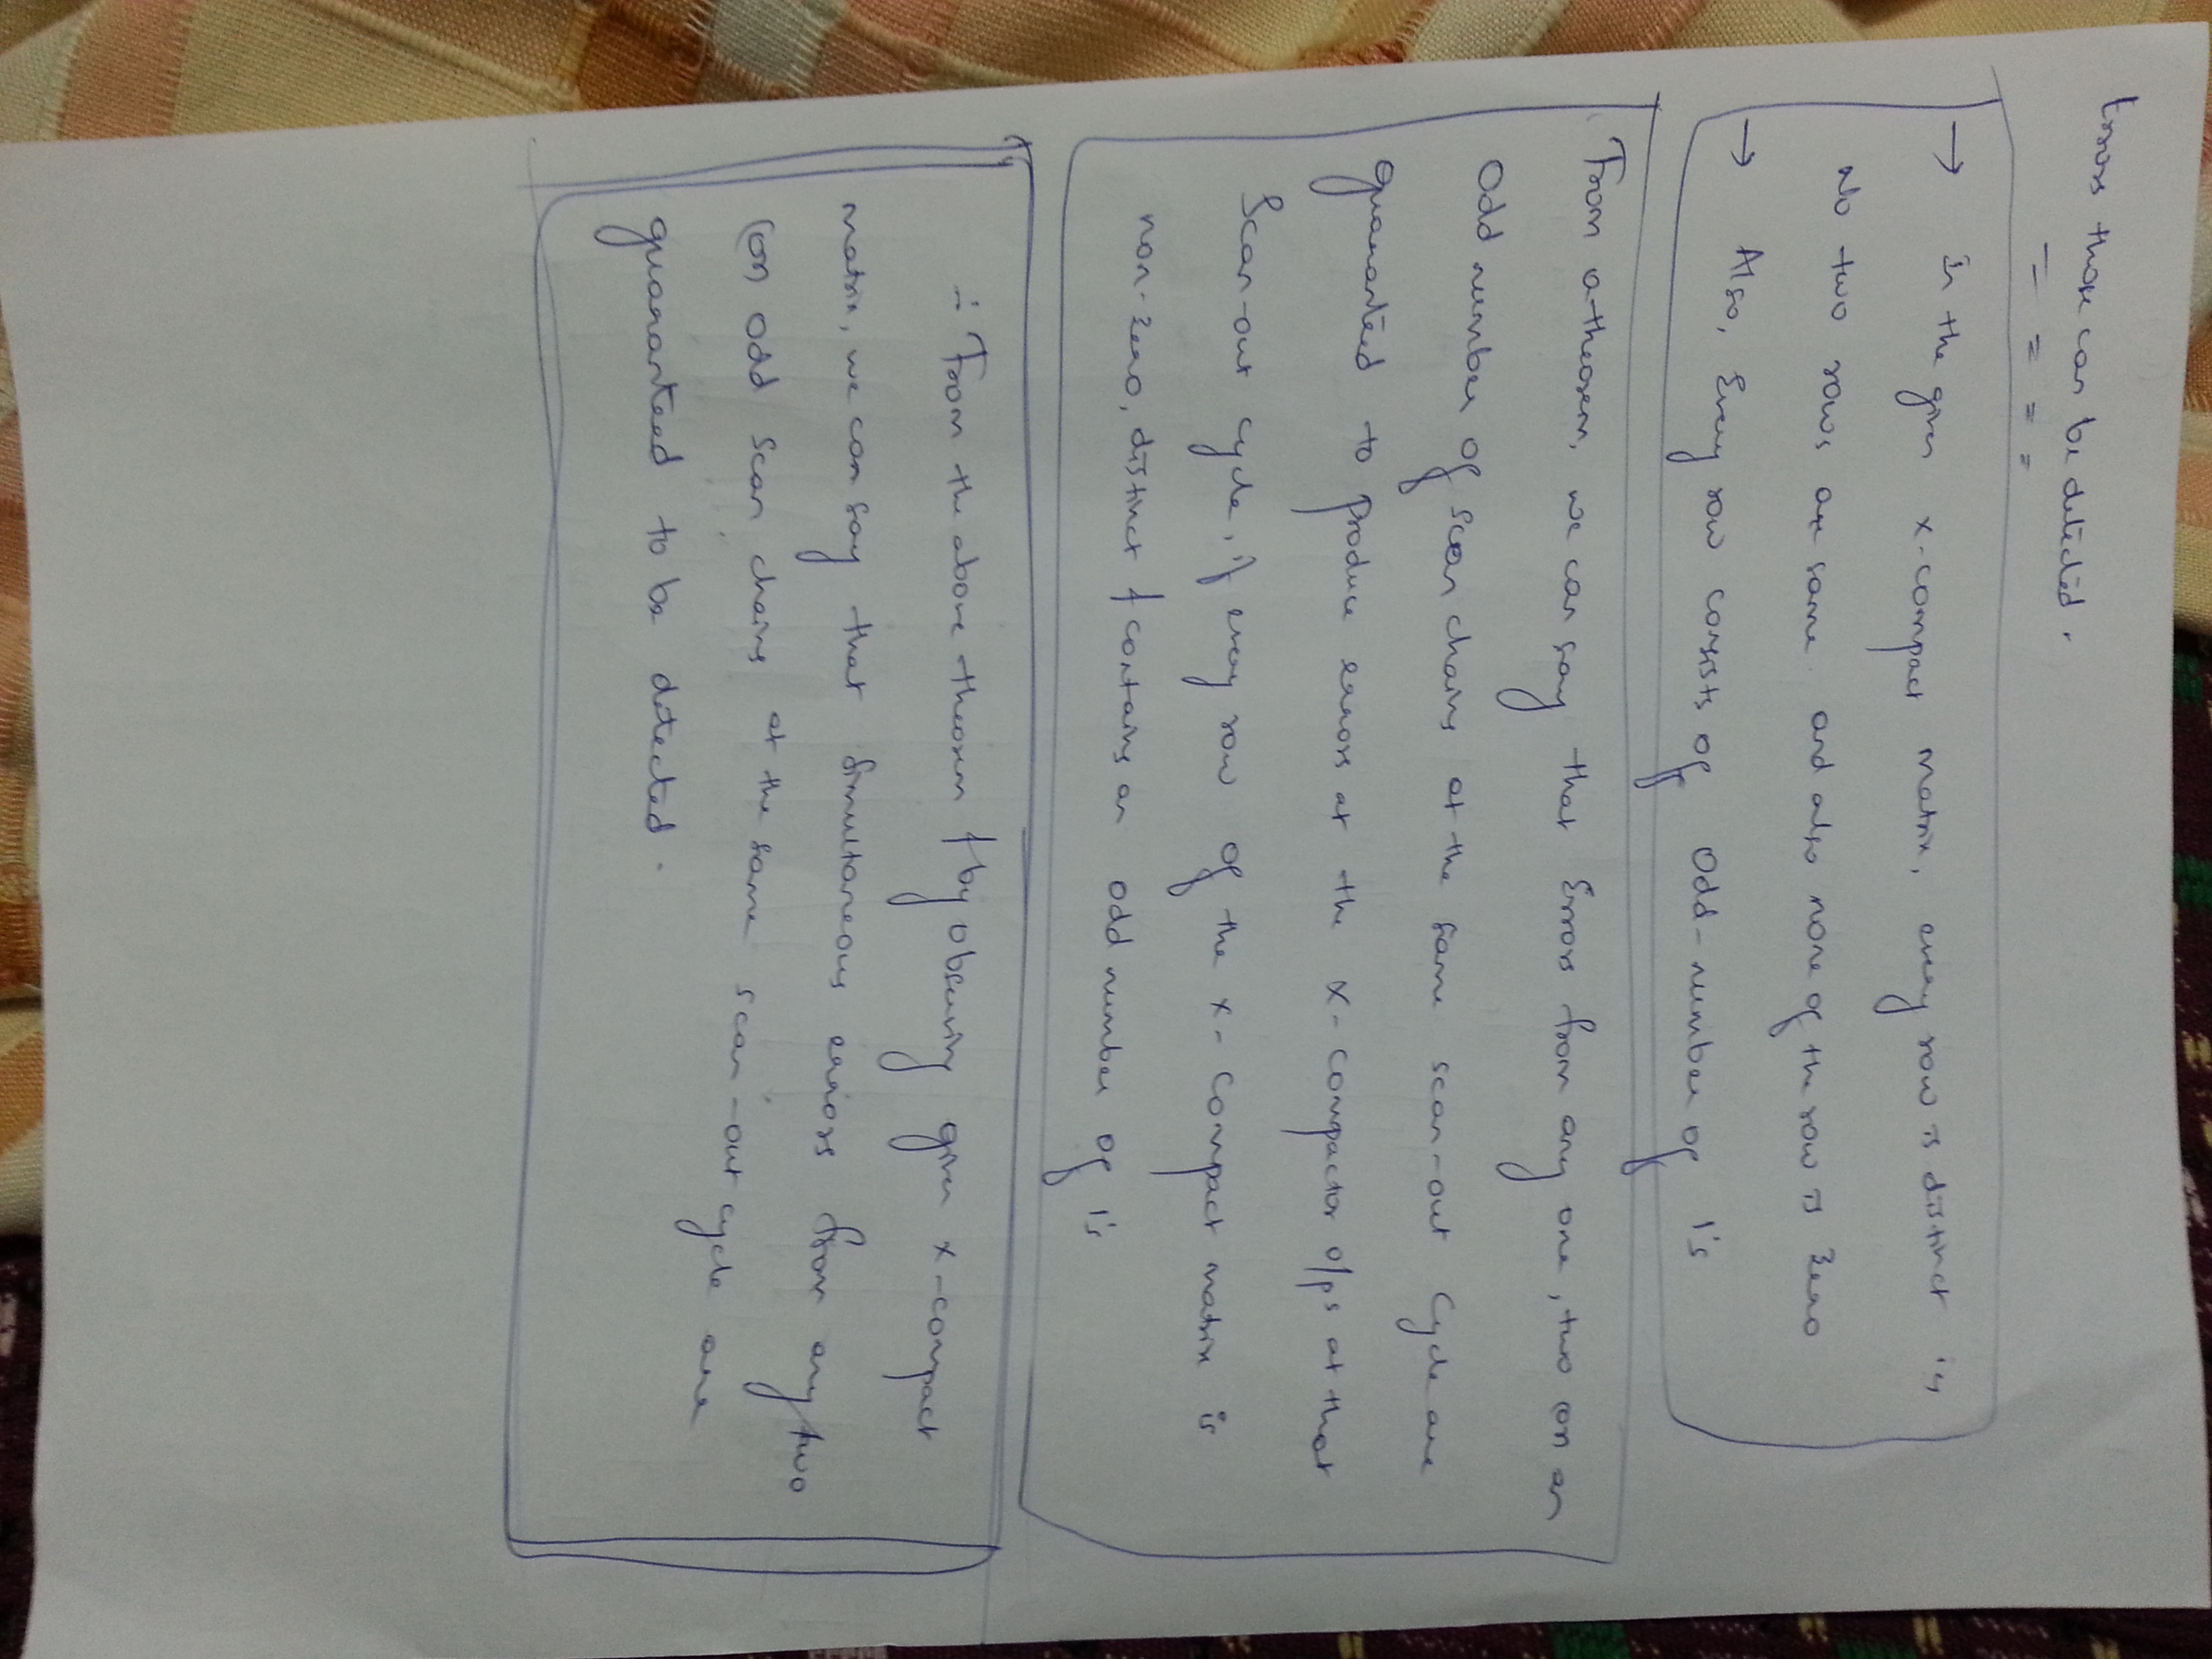 Errors those can be detected.
→ in the given x-compact matrix, every row is distinct ie
No two rows are same and also none of the row is zero
→ Also, Every row consists of odd-number of 1's
From a theorem, we can say that Errors from any one, two (or) an
odd number of scan chains at the same scan-out cycle are
guaranteed to produce errors at the x-compactor o/ps at that
Scan-out cycle, if every row of the x-compact matrix is
non-zero, distinct & contains an odd number of 1's
∴ From the above theorem & by observing given x-compact
matrix, we can say that simultaneous errors from any two
(or) odd scan chains at the same scan-out cycle are
guaranteed to be detected.